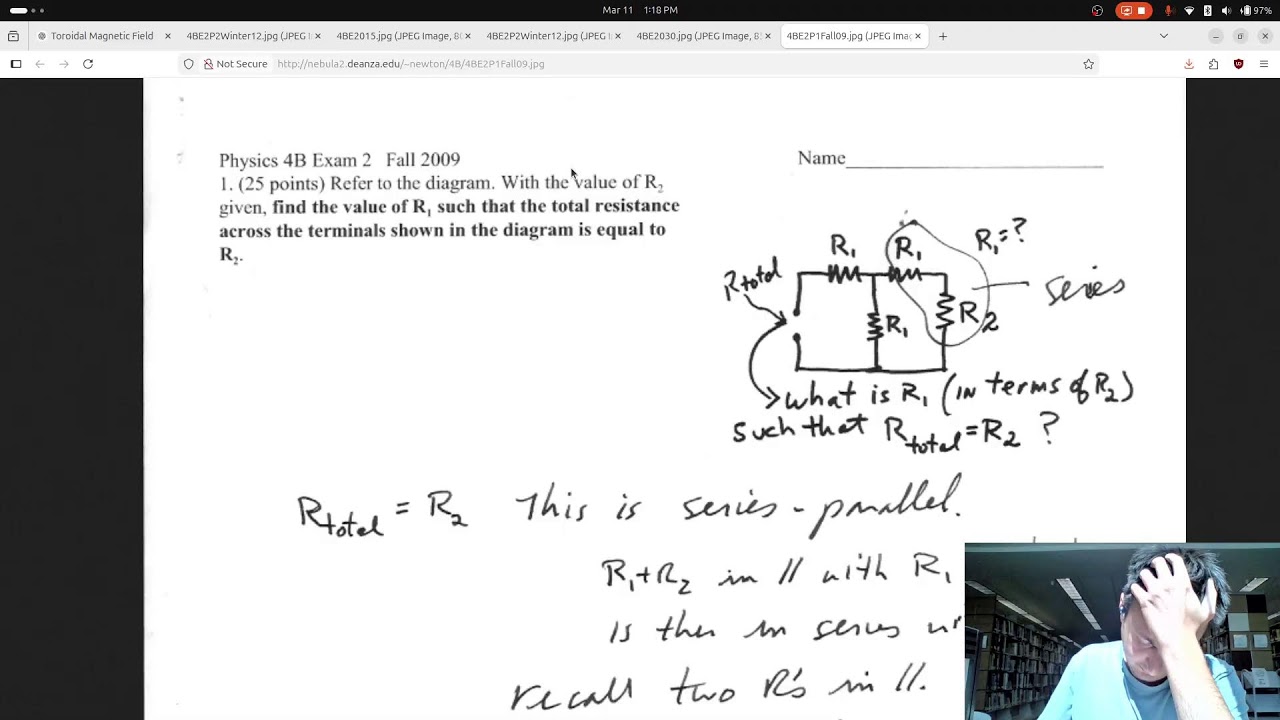 Mar 11 1:18 PM
97%
Toroidal Magnetic Field
4BE2P2Winter12.jpg (JPEG I
4BE2015.jpg (JPEG Image, 8
4BE2P2Winter12.jpg (JPEG I
4BE2030.jpg (JPEG Image, 8
4BE2P1Fall09.jpg (JPEG Ima
Not Secure http://nebula2.deanza.edu/~newton/4B/4BE2P1Fall09.jpg
Physics 4B Exam 2 Fall 2009
Name
1. (25 points) Refer to the diagram. With the value of R₂
given, find the value of R₁ such that the total resistance
across the terminals shown in the diagram is equal to
R₂.
R₁ R₁ R₁=?
Rtotal
series
R₁ R2
what is R₁ (in terms of R₂)
such that Rtotal = R₂ ?
Rtotal = R₂ This is series-parallel.
R₁+R₂ in // with R₁
is then in series
recall two R's in //.